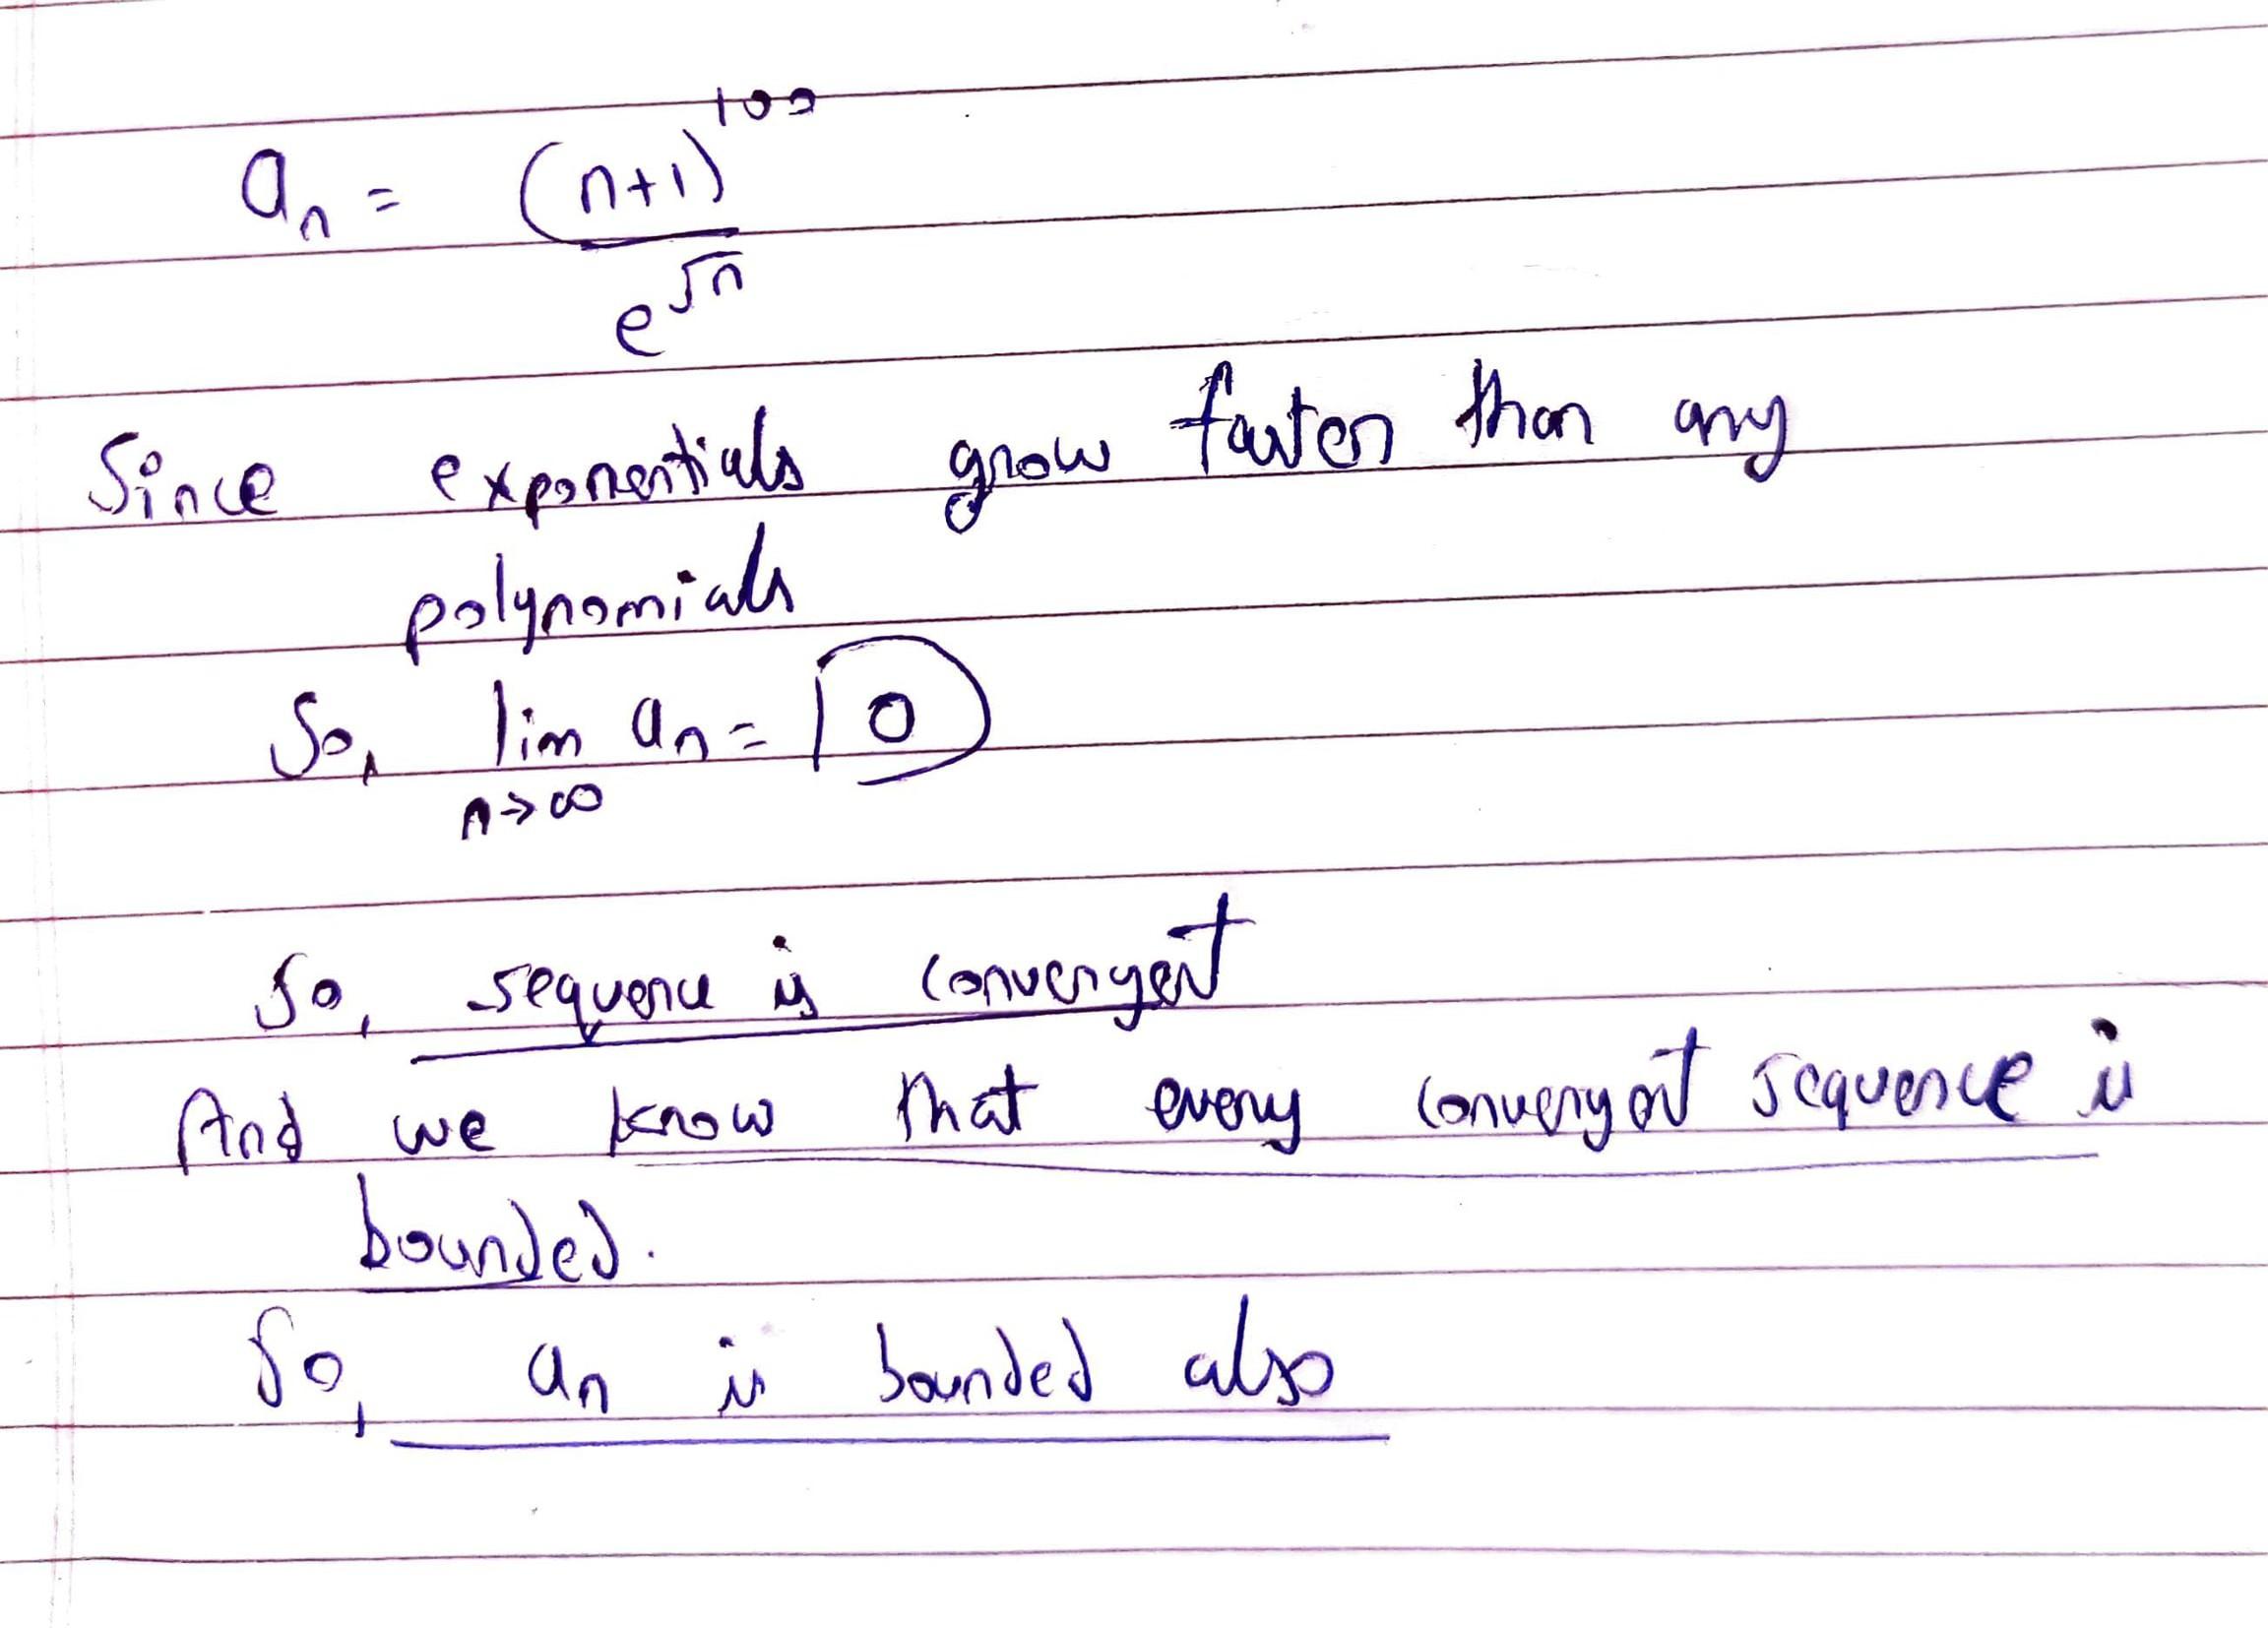 aₙ = (n+1)¹⁰⁰ / e^√n
Since exponentials grow faster than any
polynomials
So, lim aₙ = 0
n→∞
So, sequence is convergent
And we know that every convergent sequence is
bounded.
So, aₙ is bounded also